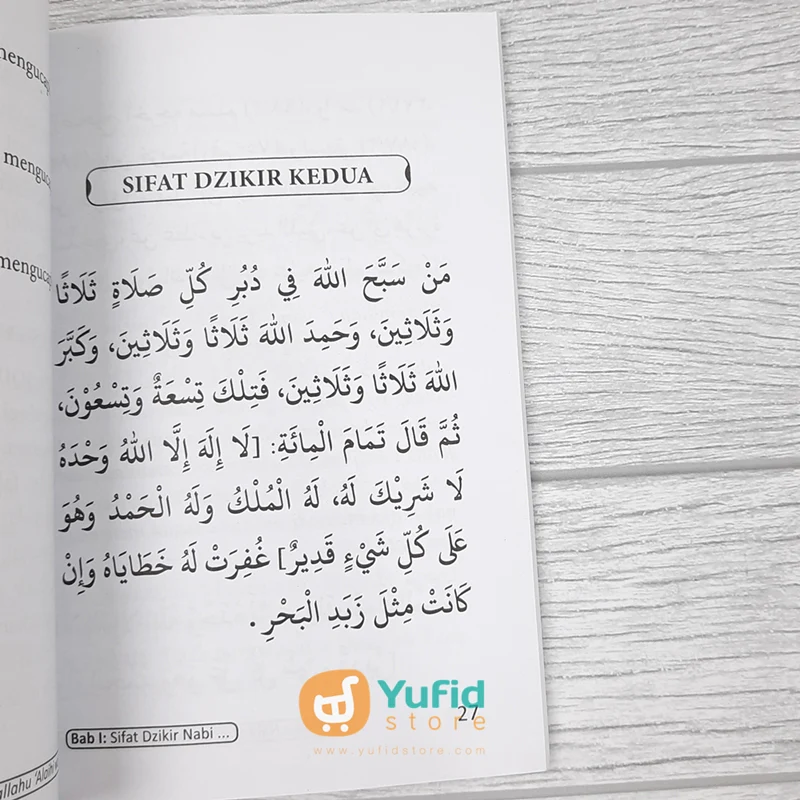 mengucap
mengucap
mengucap
SIFAT DZIKIR KEDUA
مَنْ سَبَّحَ اللهَ فِي دُبُرِ كُلِّ صَلَاةٍ ثَلَاثًا
وَثَلَاثِينَ، وَحَمِدَ اللهَ ثَلَاثًا وَثَلَاثِينَ، وَكَبَّرَ
اللهَ ثَلَاثًا وَثَلَاثِينَ، فَتِلْكَ تِسْعَةٌ وَتِسْعُوْنَ،
ثُمَّ قَالَ تَمَامَ الْمِائَةِ: [لَا إِلَهَ إِلَّا اللهُ وَحْدَهُ
لَا شَرِيْكَ لَهُ، لَهُ الْمُلْكُ وَلَهُ الْحَمْدُ وَهُوَ
عَلَى كُلِّ شَيْءٍ قَدِيرٌ] غُفِرَتْ لَهُ خَطَايَاهُ وَإِنْ
كَانَتْ مِثْلَ زَبَدِ الْبَحْرِ .
Yufid
store
www.yufidstore.com
27
Bab I: Sifat Dzikir Nabi ...
allahu 'Alaihi